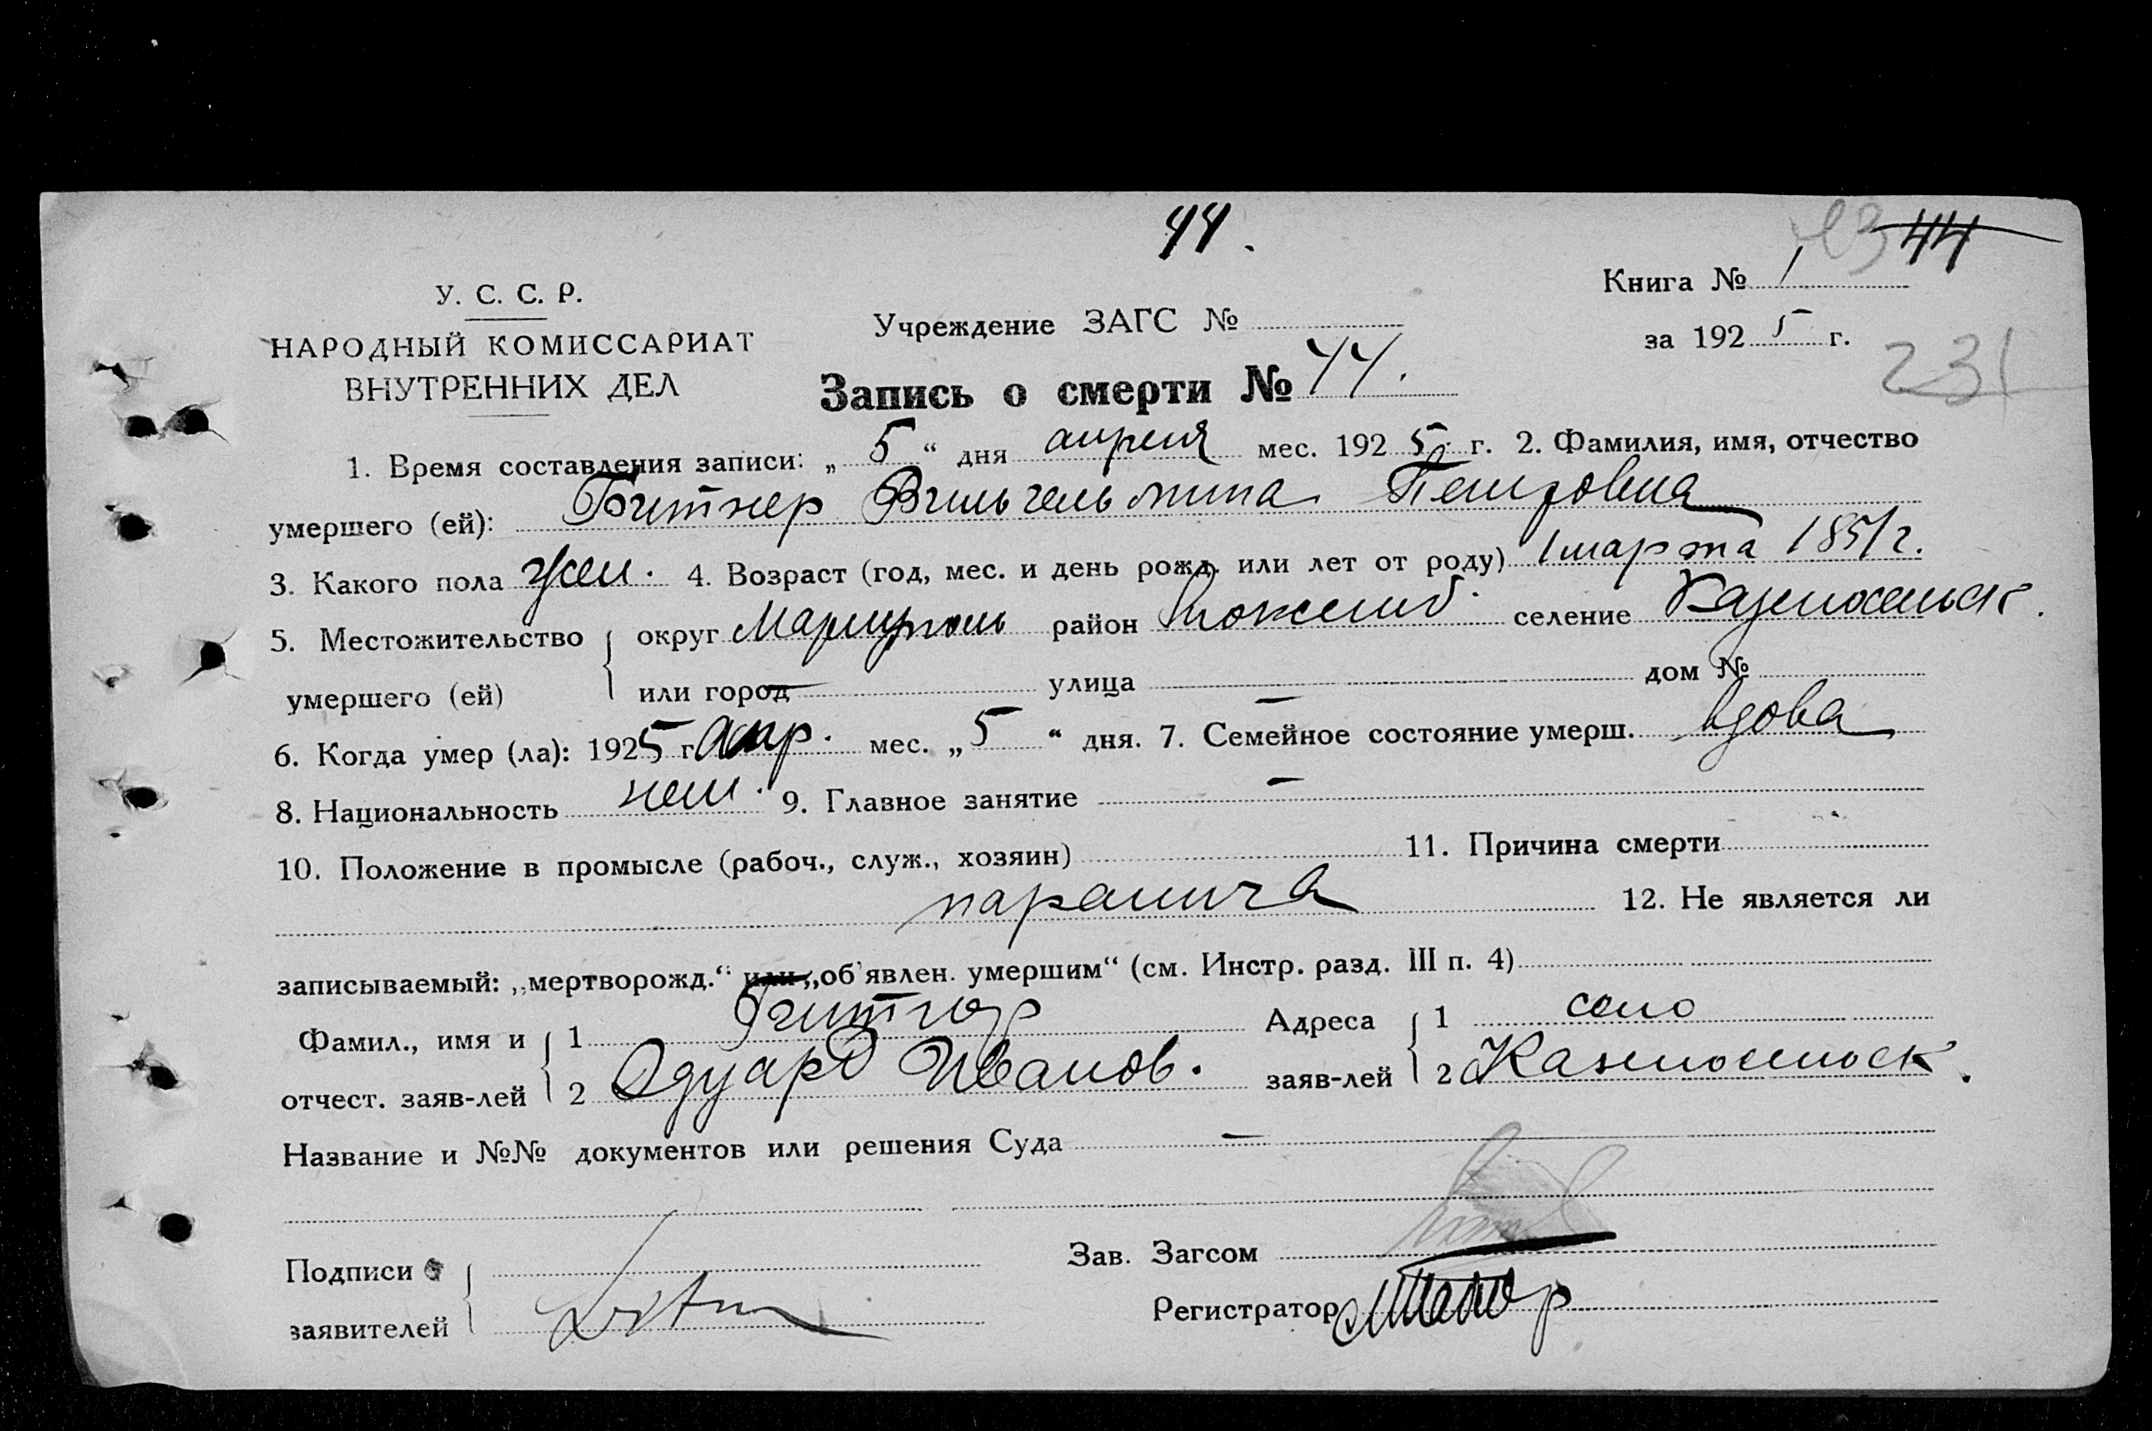 44.
44
У. С. С. Р.
Книга № 1
НАРОДНЫЙ КОМИССАРИАТ
Учреждение ЗАГС №
за 1925 г.
ВНУТРЕННИХ ДЕЛ
231
Запись о смерти № 44.
1. Время составления записи: „5“ дня апреля мес. 1925 г. 2. Фамилия, имя, отчество
умершего (ей): Битнер Вильгельмина Петровна
3. Какого пола жен. 4. Возраст (год, мес. и день рожд. или лет от роду) 1 марта 1851 г.
5. Местожительство округ Мариуполь район селение
умершего (ей) или город улица — дом №
6. Когда умер (ла): 1925 г. апр. мес. „5“ дня. 7. Семейное состояние умерш. вдова
8. Национальность нем. 9. Главное занятие —
10. Положение в промысле (рабоч., служ., хозяин) 11. Причина смерти
паралича 12. Не является ли
записываемый: „мертворожд.“ или „об'явлен. умершим“ (см. Инстр. разд. III п. 4)
Фамил., имя и 1 Битнер Адреса 1 село
отчест. заяв-лей 2 Эдуард Иванов. заяв-лей 2
Название и №№ документов или решения Суда —
Подписи
Зав. Загсом
заявителей
Регистратор